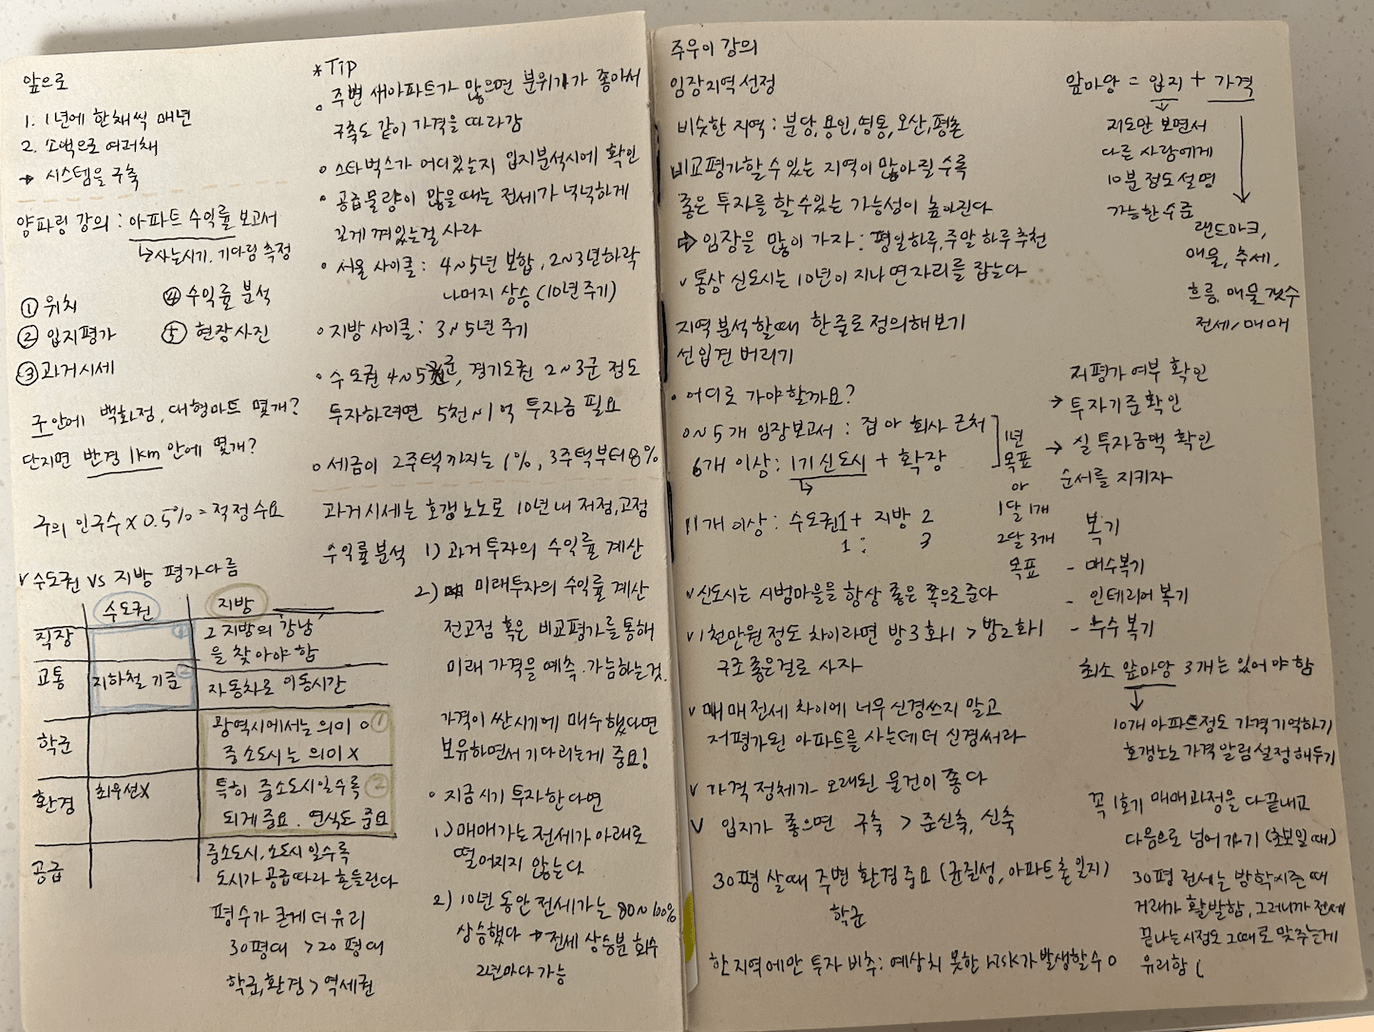 앞으로
1. 1년에 한채씩 매년
2. 소액으로 여러채
→ 시스템을 구축
양파링 강의 : 아파트 수익률 보고서
↳ 사는시기, 기다림 측정
① 위치
② 입지평가
③ 과거시세
④ 수익률 분석
⑤ 현장사진
구안에 백화점, 대형마트 몇개?
단지면 반경 1km 안에 몇개?
구의 인구수 X 0.5% = 적정수요
v 수도권 vs 지방 평가다름
수도권 지방
직장 ① 그 지방의 강남
을 찾아야 함
교통 지하철 기준 ② 자동차로 이동시간
학군 광역시에서는 의미 O ①
중소도시는 의미 X
환경 최우선X 특히 중소도시일수록 ②
되게 중요. 연식도 중요
공급 중소도시, 소도시일수록
도시가 공급따라 흔들린다
평수가 큰게 더 유리
30평대 > 20평대
학군, 환경 > 역세권
*Tip
주변 새아파트가 많으면 분위기가 좋아서
구축도 같이 가격을 따라감
스타벅스가 어디있는지 입지분석시에 확인
공급물량이 많을때는 전세가 넉넉하게
깊게 껴있는걸 사라
서울 사이클 : 4~5년 보합, 2~3년하락
나머지 상승 (10년 주기)
지방 사이클 : 3~5년 주기
수도권 4~5군, 경기도권 2~3군 정도
투자하려면 5천~1억 투자금 필요
세금이 2주택까지는 1%, 3주택부터 8%
과거시세는 호갱노노로 10년내 저점, 고점
수익률 분석 1) 과거 투자의 수익률 계산
2) 미래투자의 수익률 계산
전고점 혹은 비교평가를 통해
미래 가격을 예측. 가능하는것.
가격이 싼시기에 매수했다면
보유하면서 기다리는게 중요!
지금시기 투자한다면
1) 매매가는 전세가 아래로
떨어지지 않는다
2) 10년 동안 전세가는 80~100%
상승했다 → 전세 상승분 회수
2년마다 가능
주우이 강의
임장지역선정
비슷한 지역 : 분당, 용인, 영통, 오산, 평촌
비교평가할 수 있는 지역이 많아질 수록
좋은 투자를 할 수 있는 가능성이 높아진다
⇒ 임장을 많이 가자 : 평일하루, 주말 하루 추천
v 통상 신도시는 10년이 지나면 자리를 잡는다
지역 분석할때 한줄로 정의해보기
선입견 버리기
어디로 가야할까요?
0~5개 임장보고서 : 집 아 회사 근처
6개 이상 : 1기신도시 + 확장
11개 이상 : 수도권1 + 지방 2
1 : 3
1년
목표
or
1달 1개
2달 3개
목표
v 신도시는 시범마을을 항상 좋은 쪽으로준다
v 1천만원 정도 차이라면 방3 화1 > 방2 화1
구조 좋은걸로 사자
v 매매 전세 차이에 너무 신경쓰지 말고
저평가된 아파트를 사는데 더 신경써라
v 가격 정체가 오래된 물건이 좋다
v 입지가 좋으면 구축 > 준신축, 신축
30평 살때 주변 환경 중요 (균질성, 아파트촌일지)
학군
한 지역에만 투자 비추 : 예상치 못한 risk가 발생할수 O
앞마당 = 입지 + 가격
지도만 보면서
다른 사람에게
10분 정도 설명
가능한 수준
랜드마크,
매물, 추세,
흐름, 매물 갯수
전세/매매
저평가 여부 확인
→ 투자기준확인
→ 실 투자금액 확인
순서를 지키자
복기
- 매수복기
- 인테리어 복기
복기
최소 앞마당 3개는 있어야 함
10개 아파트정도 가격 기억하기
호갱노노 가격 알림설정 해두기
꼭 1호기 매매과정을 다 끝내고
다음으로 넘어가기 (초보일때)
30평 전세는 방학시즌 때
거래가 활발함, 그러니까 전세
끝나는시점도 그때로 맞추는게
유리함